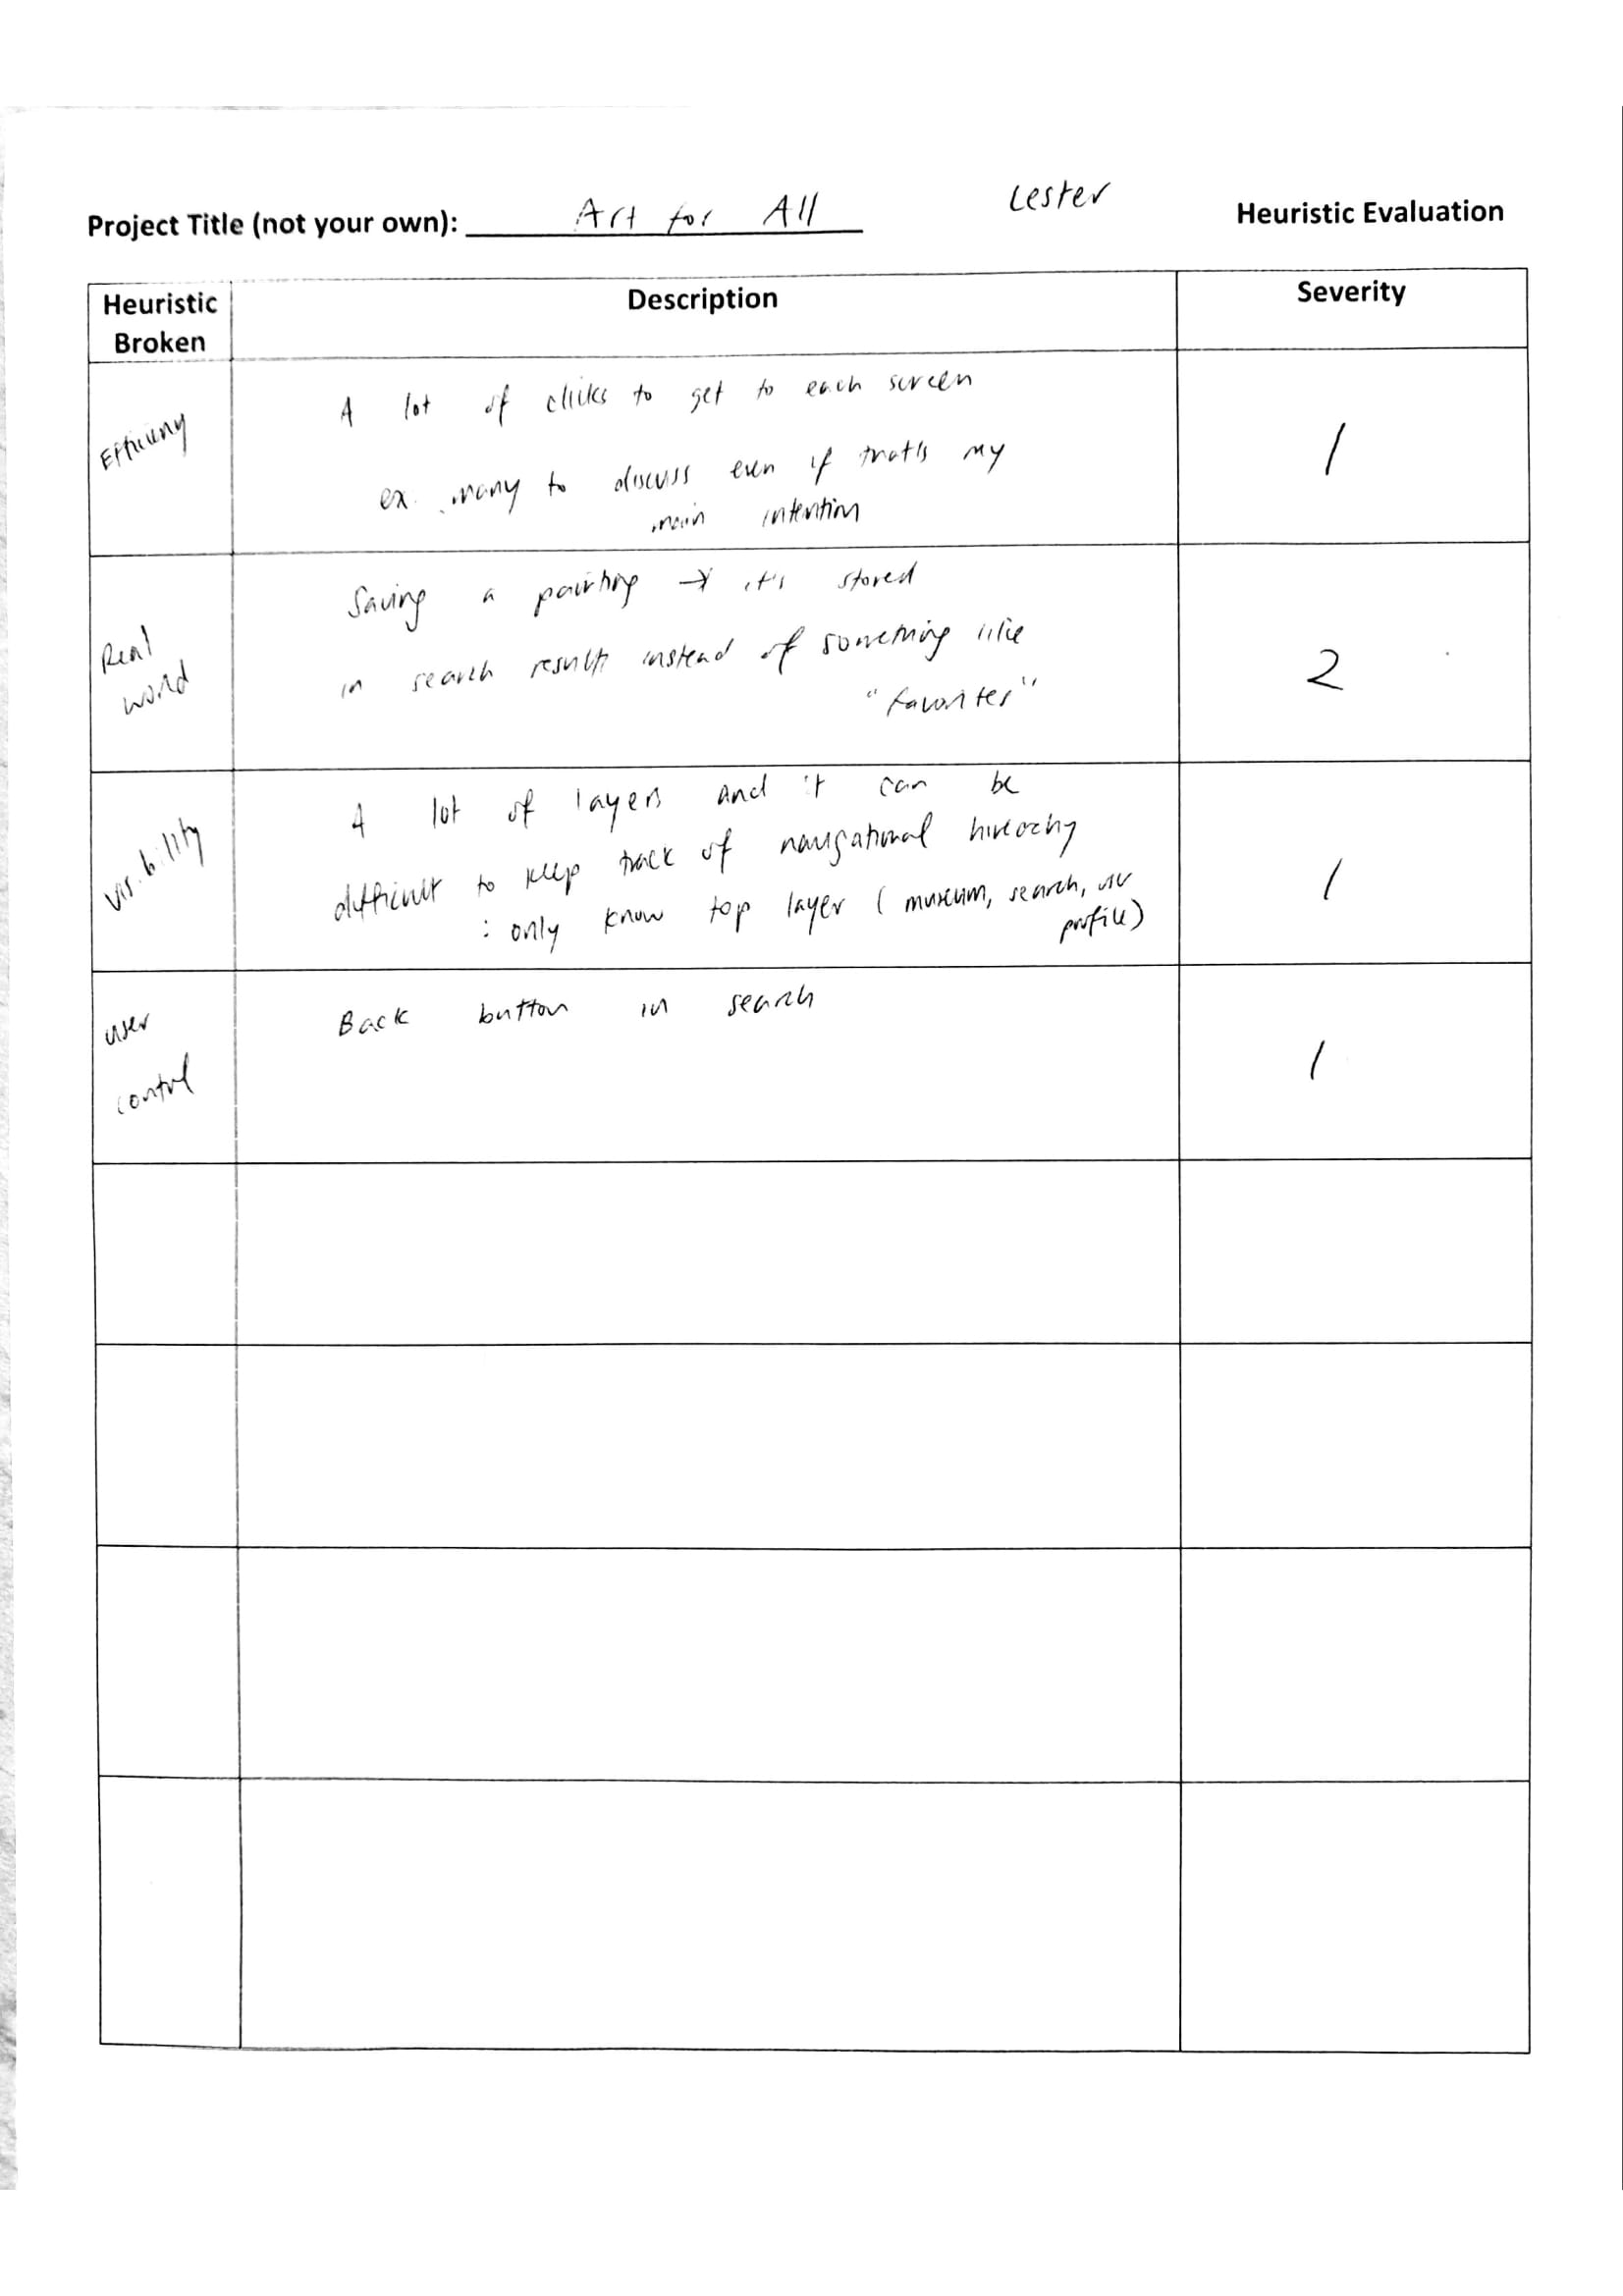 Lester
Project Title (not your own): Art for All Heuristic Evaluation
Heuristic Broken Description Severity
Efficieny
A lot of clicks to get to each screen
ex. many to discuss even if that's my
main intention
1
Real
world
Saving a painting → it's stored
in search results instead of something like
"favorites"
2
Visibility
A lot of layers and it can be
difficult to keep track of navigational hierarchy
: only know top layer (museum, search, or
profile)
1
user
control
Back button in search
1